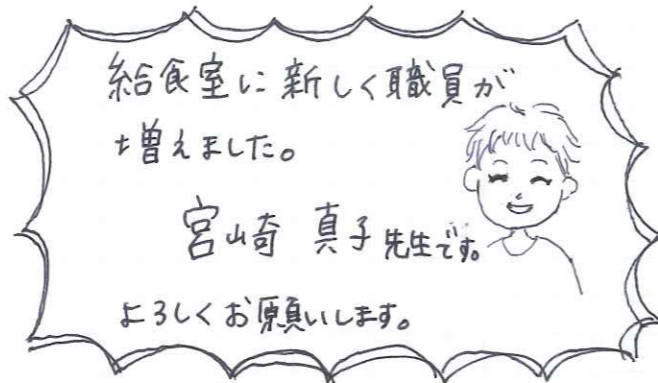 給食室に新しく職員が
増えました。
宮崎 真子先生です。
よろしくお願いします。